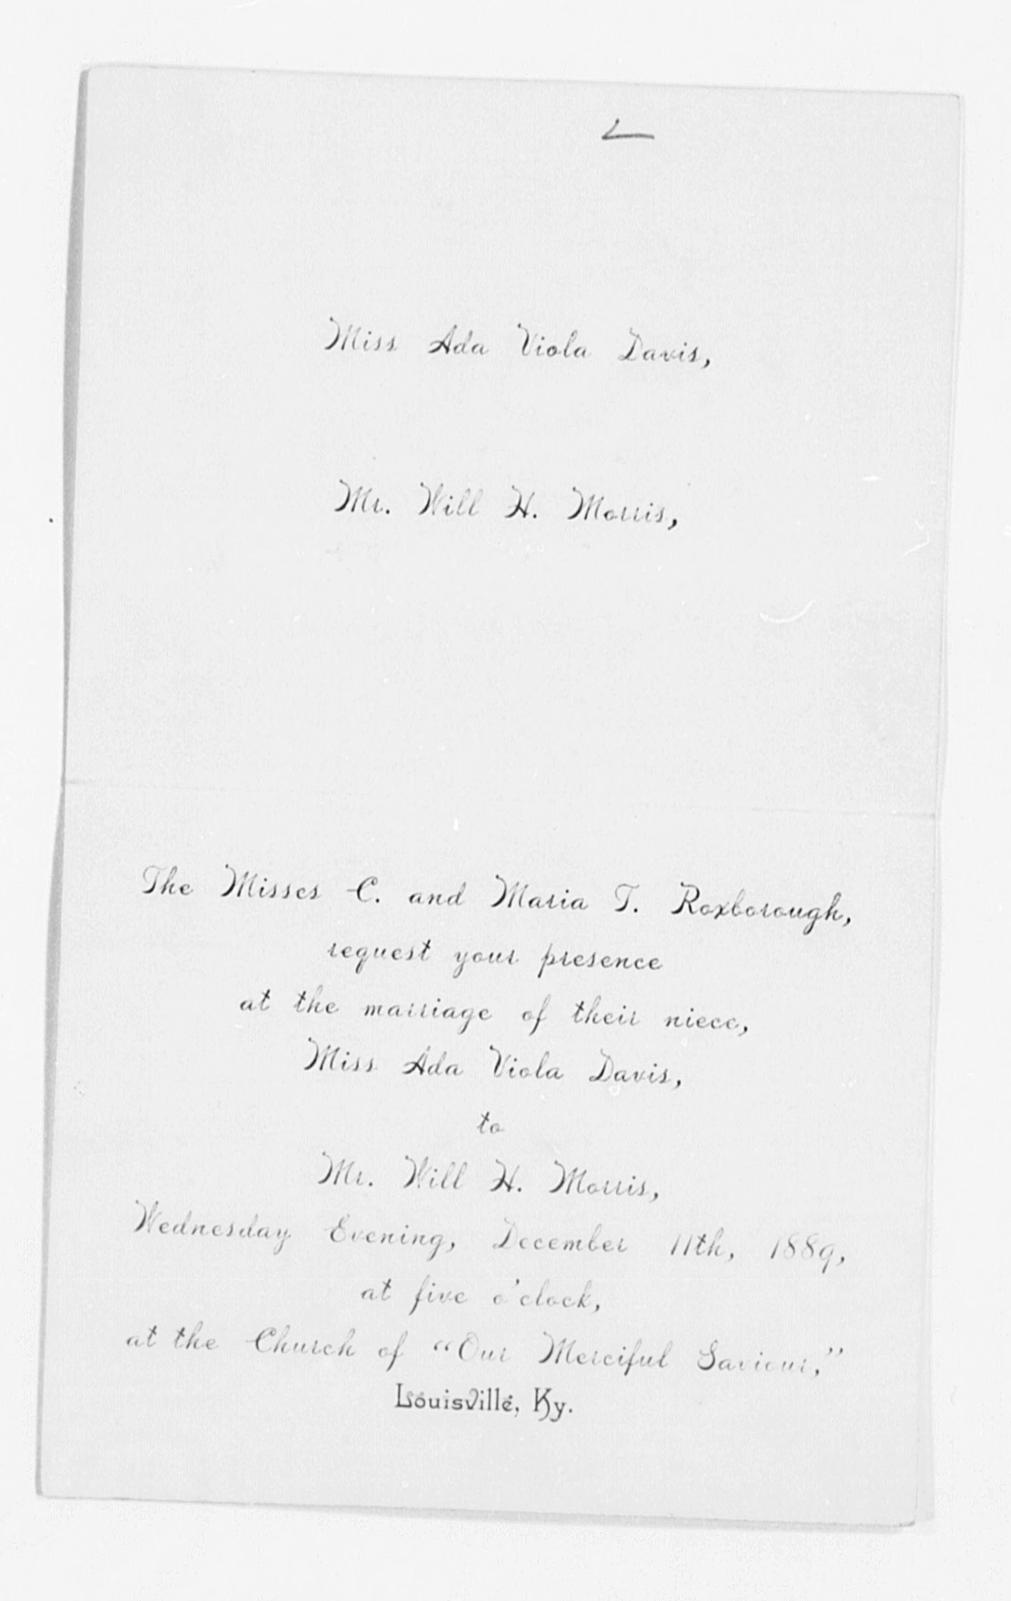 Miss Ada Viola Davis,
Mr. Will H. Morris,
The Misses C. and Maria T. Roxborough,
request your presence
at the marriage of their niece,
Miss Ada Viola Davis,
to
Mr. Will H. Morris,
Wednesday Evening, December 11th, 1889,
at five o'clock,
at the Church of “Our Merciful Saviour,”
Louisville, Ky.